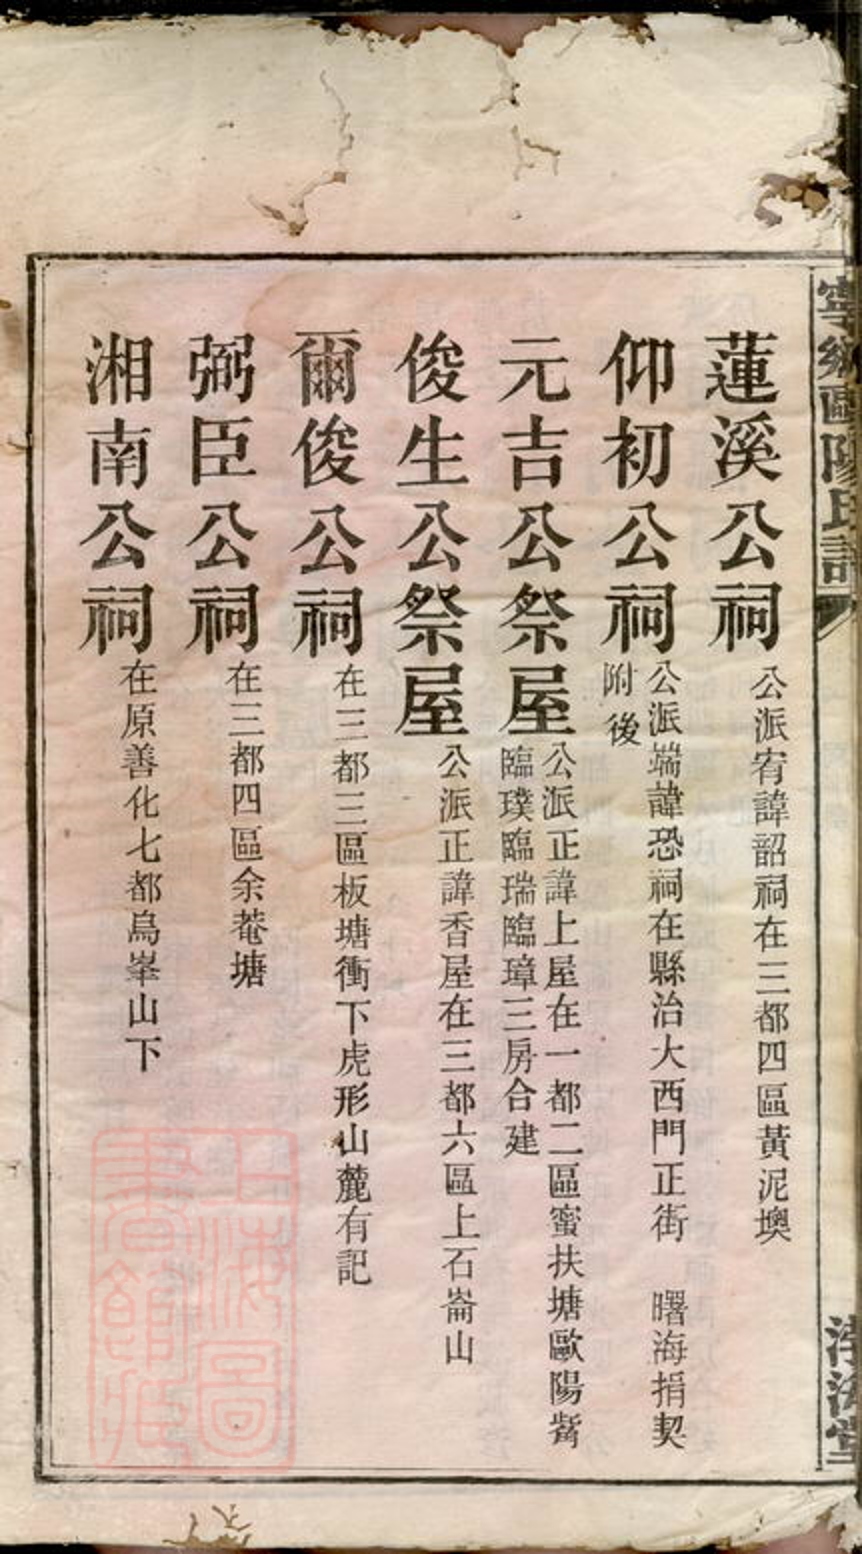 寧鄉歐陽氏譜
蓮溪公祠
公派宥諱韶祠在三都四區黃泥墺
仰初公祠
公派端諱恐祠在縣治大西門正街 曙海捐契
附後
元吉公祭屋
公派正諱上屋在一都二區蜜扶塘歐陽
臨璞臨瑞臨璋三房合建
俊生公祭屋
公派正諱香屋在三都六區上石崙山
爾俊公祠
在三都三區板塘衝下虎形山麓有記
弼臣公祠
在三都四區余菴塘
湘南公祠
在原善化七都烏峯山下
上海圖書館藏